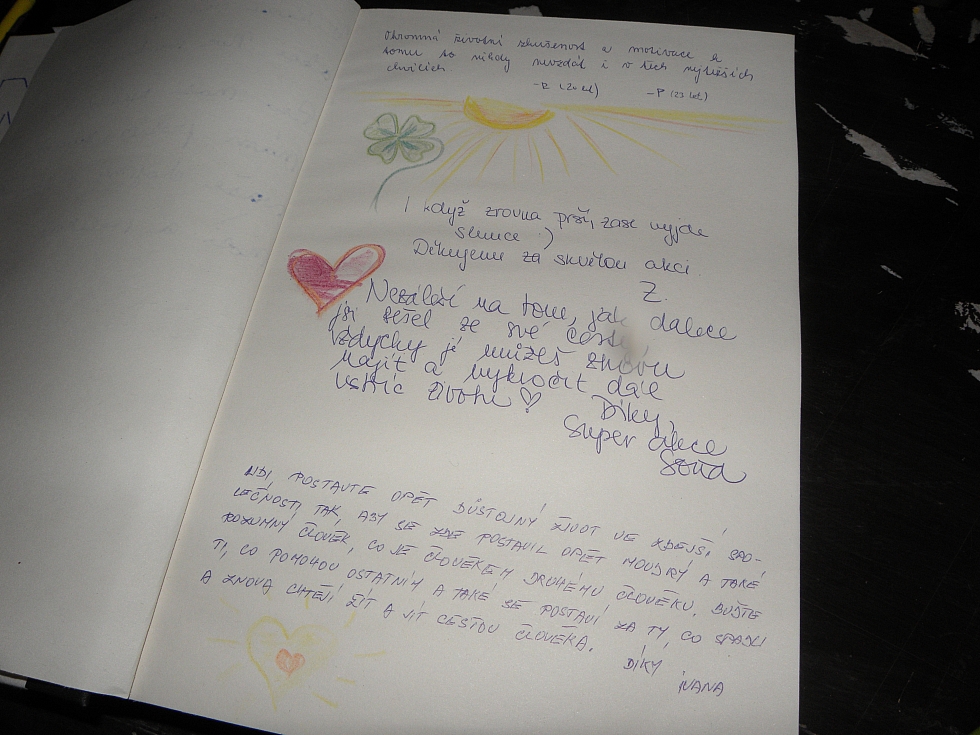 Ohromná životní zkušenost a motivace k
tomu to nikdy nevzdát i v těch nejtěžších
chvílích
-R (20 let) -P (23 let)
I když zrovna prší, zase vyjde
slunce :)
Děkujeme za skvělou akci
Z.
Nezáleží na tom, jak dalece
jsi sešel ze své cesty,
vždycky ji můžeš znovu
najít a vykročit dál
vstříc životu ♡
Díky,
super akce
Soňa
LIDI, POSTAVTE OPĚT DŮSTOJNÝ ŽIVOT VE ZDEJŠÍ SPO-
LEČNOSTI, TAK, ABY SE ZDE POSTAVIL OPĚT MOUDRÝ A TAKÉ
ROZUMNÝ ČLOVĚK, CO JE ČLOVĚKEM DRUHÉMU ČLOVĚKU. BUĎTE
TI, CO POMOHOU OSTATNÍM A TAKÉ SE POSTAVÍ ZA TY, CO SPADLI
A ZNOVA CHTĚJÍ ŽÍT A JÍT CESTOU ČLOVĚKA.
DÍKY
IVANA